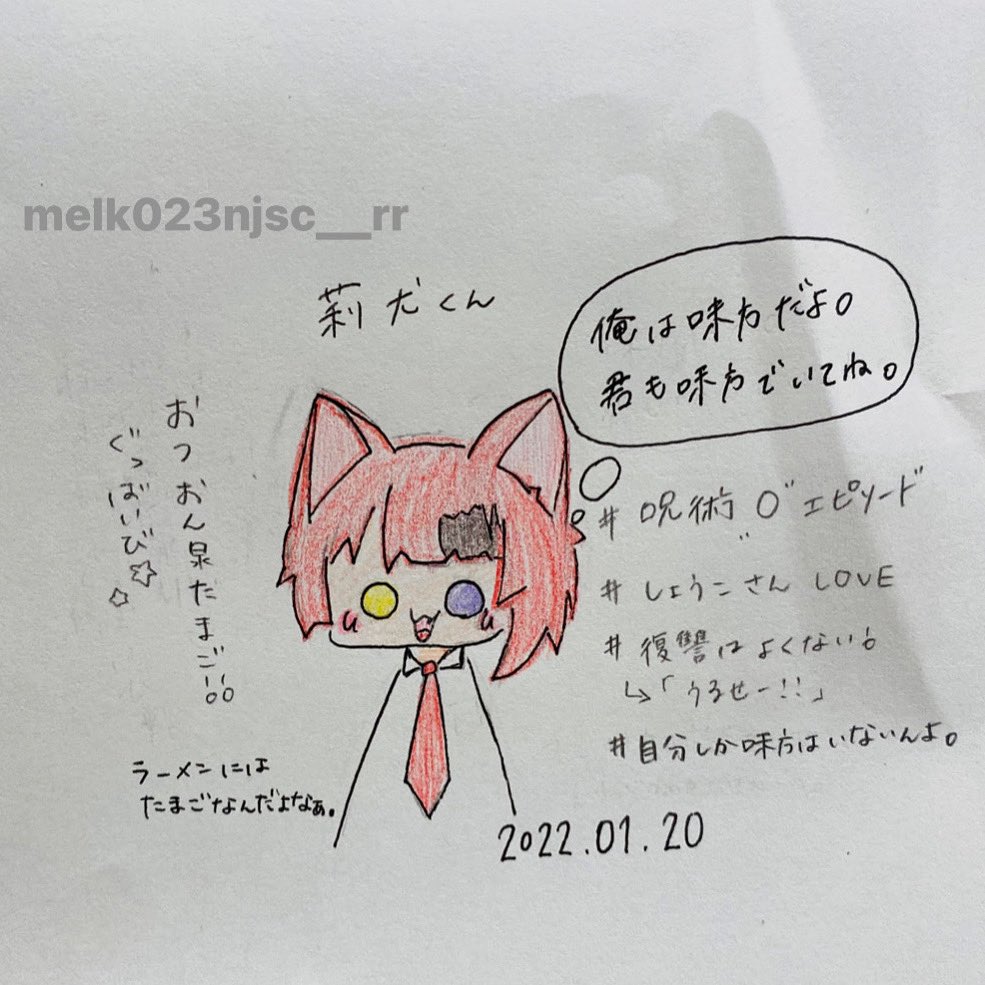 melk023njsc__rr
莉犬くん
俺は味方だよ。
君も味方でいてね。
おつおん泉たまご!!
ぐっばいび☆☆
# 呪術 0" エピソード
# しょうこさん LOVE
# 復讐はよくない!
↳「うるせー!!」
# 自分しか味方はいないんよ。
ラーメンには
たまごなんだよなぁ。
2022.01.20